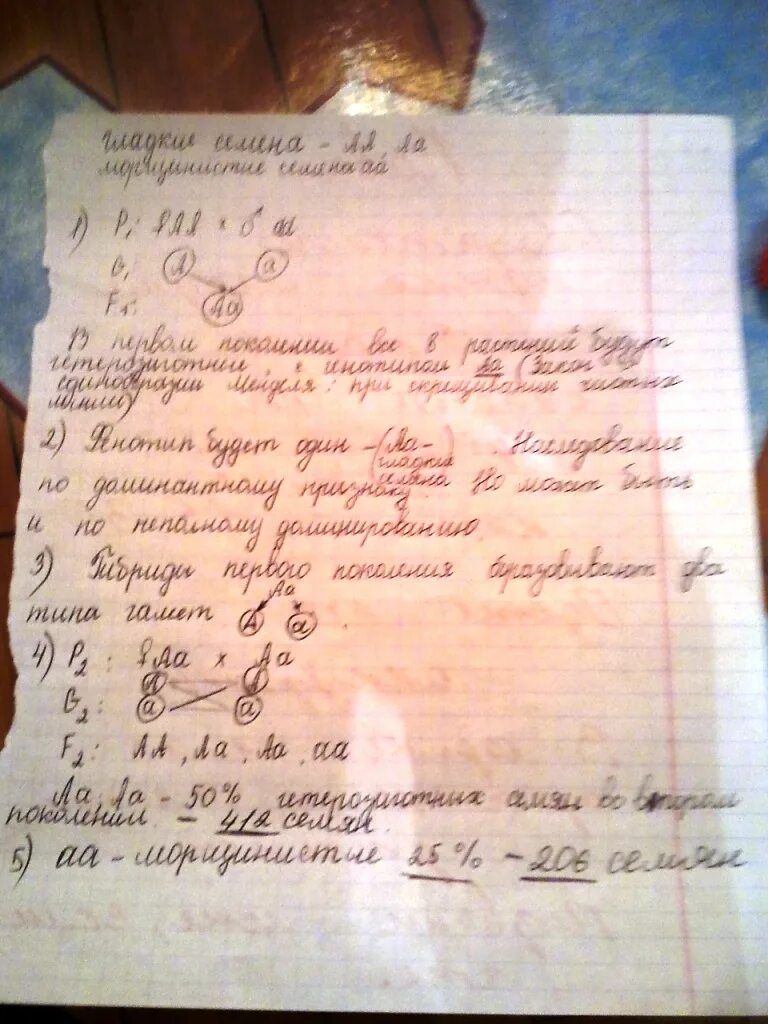 гладкие семена - АА, Аа
морщинистые семена аа
1) P₁: ♀АА × ♂ аа
G₁: А а
F₁: Аа
В первом поколении все 8 растений будут
гетерозиготные, с генотипом Аа (Закон
единобразия Менделя: при скрещивании чистых
линий)
2) Фенотип будет один - (Аа - гладкие семена). Наследование
по доминантному признаку. Но может быть
и по неполному доминированию.
3) Гибриды первого поколения два
типа гамет Аа А а
4) P₂: ♀Аа × Аа
G₂: А а А а
F₂: АА, Аа, Аа, аа
Аа, Аа - 50% гетерозиготных семян во втором
поколении. - 412 семян.
5) аа - морщинистые 25% - 206 семян